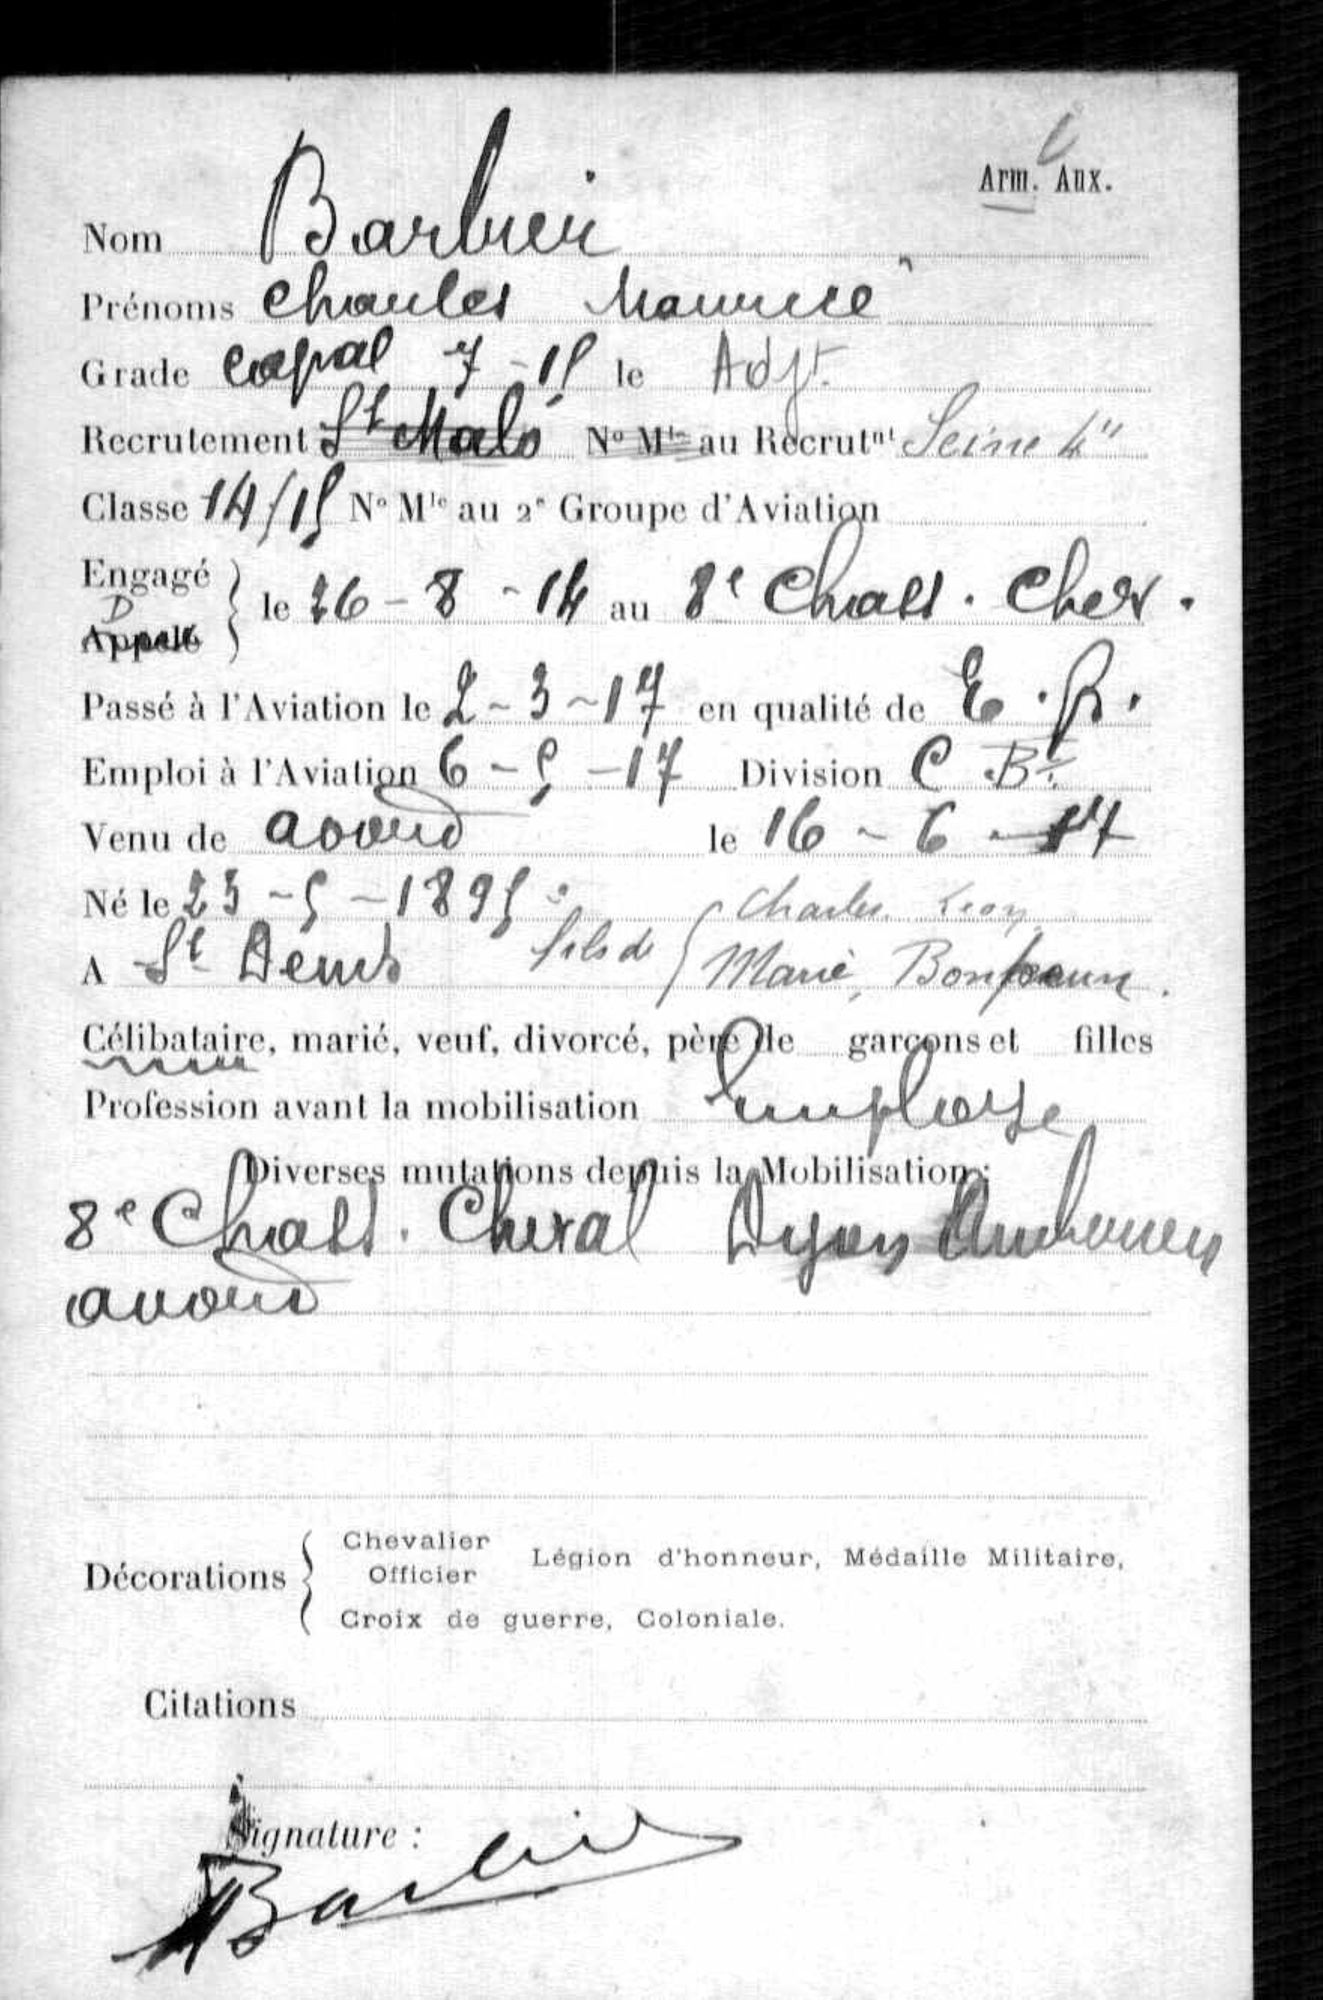 Arm. Aux.
Nom Barbier
Prénoms Charles Maurice
Grade Capal 7-15 le Adjt.
Recrutement St Malo No Mle au Recrutnt Seine 4"
Classe 14/15 No Mle au 2e Groupe d'Aviation
Engagé
D
Appelé
le 26-8-14 au 8e Chass. Chev.
Passé à l'Aviation le 2-3-17 en qualité de E.P.
Emploi à l'Aviation 6-5-17 Division C Bt.
Venu de avord le 16-6-17
Né le 23-5-1895 Charles Léon
A St Denis fils de Marie,
Célibataire, marié, veuf, divorcé, père de garçons et filles
Profession avant la mobilisation Employe
Diverses mutations depuis la Mobilisation:
8e Chass. Cheval Dijon Ambérieu
avord
Décorations Chevalier Officier Légion d'honneur, Médaille Militaire,
Croix de guerre, Coloniale.
Citations
Signature :
Barbier